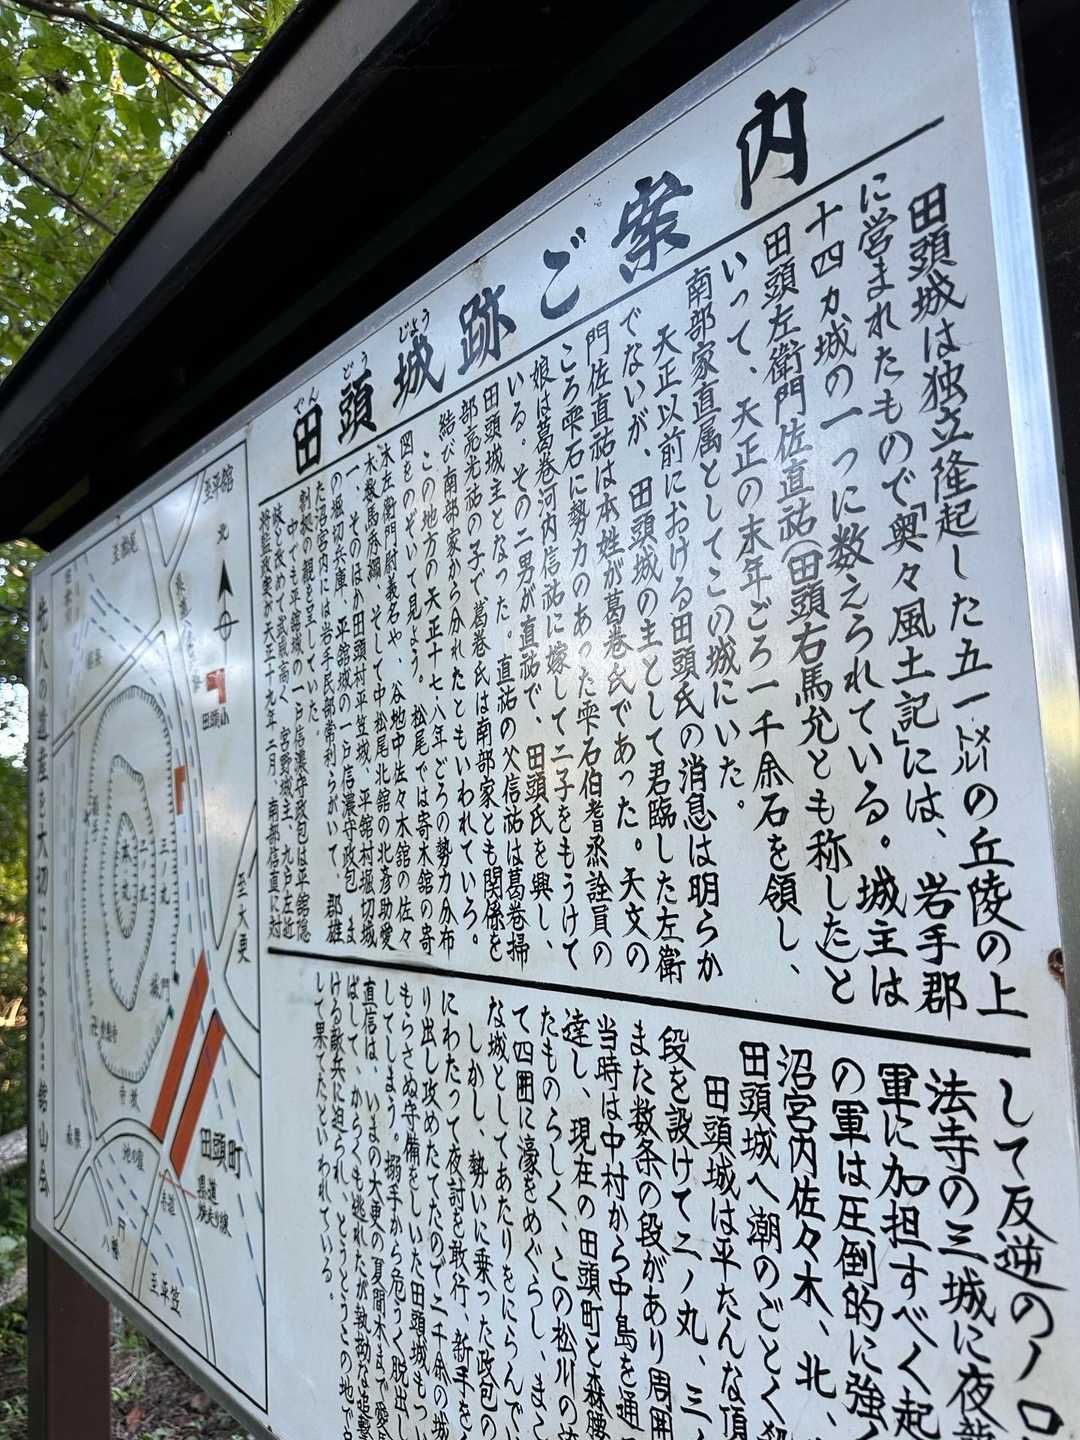 田頭城跡ご案内
でん どう じょう
田頭城は独立隆起した五一㍍の丘陵の上
に営まれたもので「奥々風土記」には、岩手郡
十四カ城の一つに数えられている。城主は
田頭左衛門佐直祐(田頭右馬允とも称した)と
いって、天正の末年ごろ一千余石を領し、
南部家直属としてこの城にいた。
天正以前における田頭氏の消息は明らか
でないが、田頭城の主として君臨した左衛
門佐直祐は本姓が葛巻氏であった。天文の
ころ雫石に勢力のあった雫石伯耆
詮員の
娘は葛巻河内信祐に嫁して二子をもうけて
いる。その二男が直祐で、田頭氏を興し、
田頭城主となった。直祐の父信祐は葛巻掃
部亮光祐の子で、葛巻氏は南部家とも関係を
結び南部家から分れたともいわれている。
この地方の天正十七・八年ごろの勢力分布
図をのぞいて見よう。松尾では寄木館の寄
木左衛門尉義名や、谷地中佐々木館の佐々
木数馬秀綱、そして中松尾北館の北彦助愛
一、そのほか田頭村平笠城、平館村堀切城
の堀切兵庫、平館城の一戸信濃守政包 ま
た沼宮内には岩手民部常利らがいて、群雄
割拠の観を呈していた。
中でも平館城の一戸信濃守政包は平館
と改めて武威高く、宮野城主、九戸左近
将監政実が天正十九年二月、南部信直に対
して反逆のノロ
法寺の三城に夜
軍に加担すべく起
の軍は圧倒的に強
沼宮内佐々木、北、
田頭城へ潮のごとく
田頭城は平たんな頂
段を設けて二ノ丸、三
また数条の段があり周囲
当時は中村から中島を通
達し、現在の田頭町と森腰
たものらしく、この松川の
て四囲に濠をめぐらし、まこ
な城としてあたりをにらんで
しかし、勢いに乗った政包の
にわたって夜討を敢行、新手を
り出し攻めたてたので二千余の城
もらさぬ守備をしいた田頭城もつい
してしまう。搦手から危うく脱出し
直信は、いまの大更の夏間木まで
ばして、からくも逃れたが執拗な追撃
ける敵兵に迫られ、とうとうこの地で
して果てたといわれている。
至平館
北
至松尾
田頭小
本丸
二ノ丸
三ノ丸
至大更
城門
寺坂
田頭町
県道
地の堰
寺道
八幡
至平笠
先人の遺産を大切にしよう 館山会